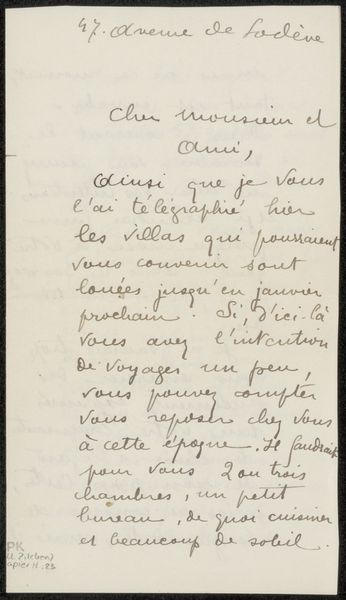 47. Avenue de Lodève
Cher Monsieur et
Ami,
Ainsi que je vous
l'ai télégraphié hier
les villas qui pourraient
vous convenir sont
louées jusqu'en janvier
prochain. Si, d'ici-là
vous avez l'intention
de voyager un peu,
vous pouvez compter
vous reposer chez vous
à cette époque. Il faudrait
pour vous 2 ou trois
chambres, un petit
bureau, de quoi cuisiner
et beaucoup de soleil.
PK